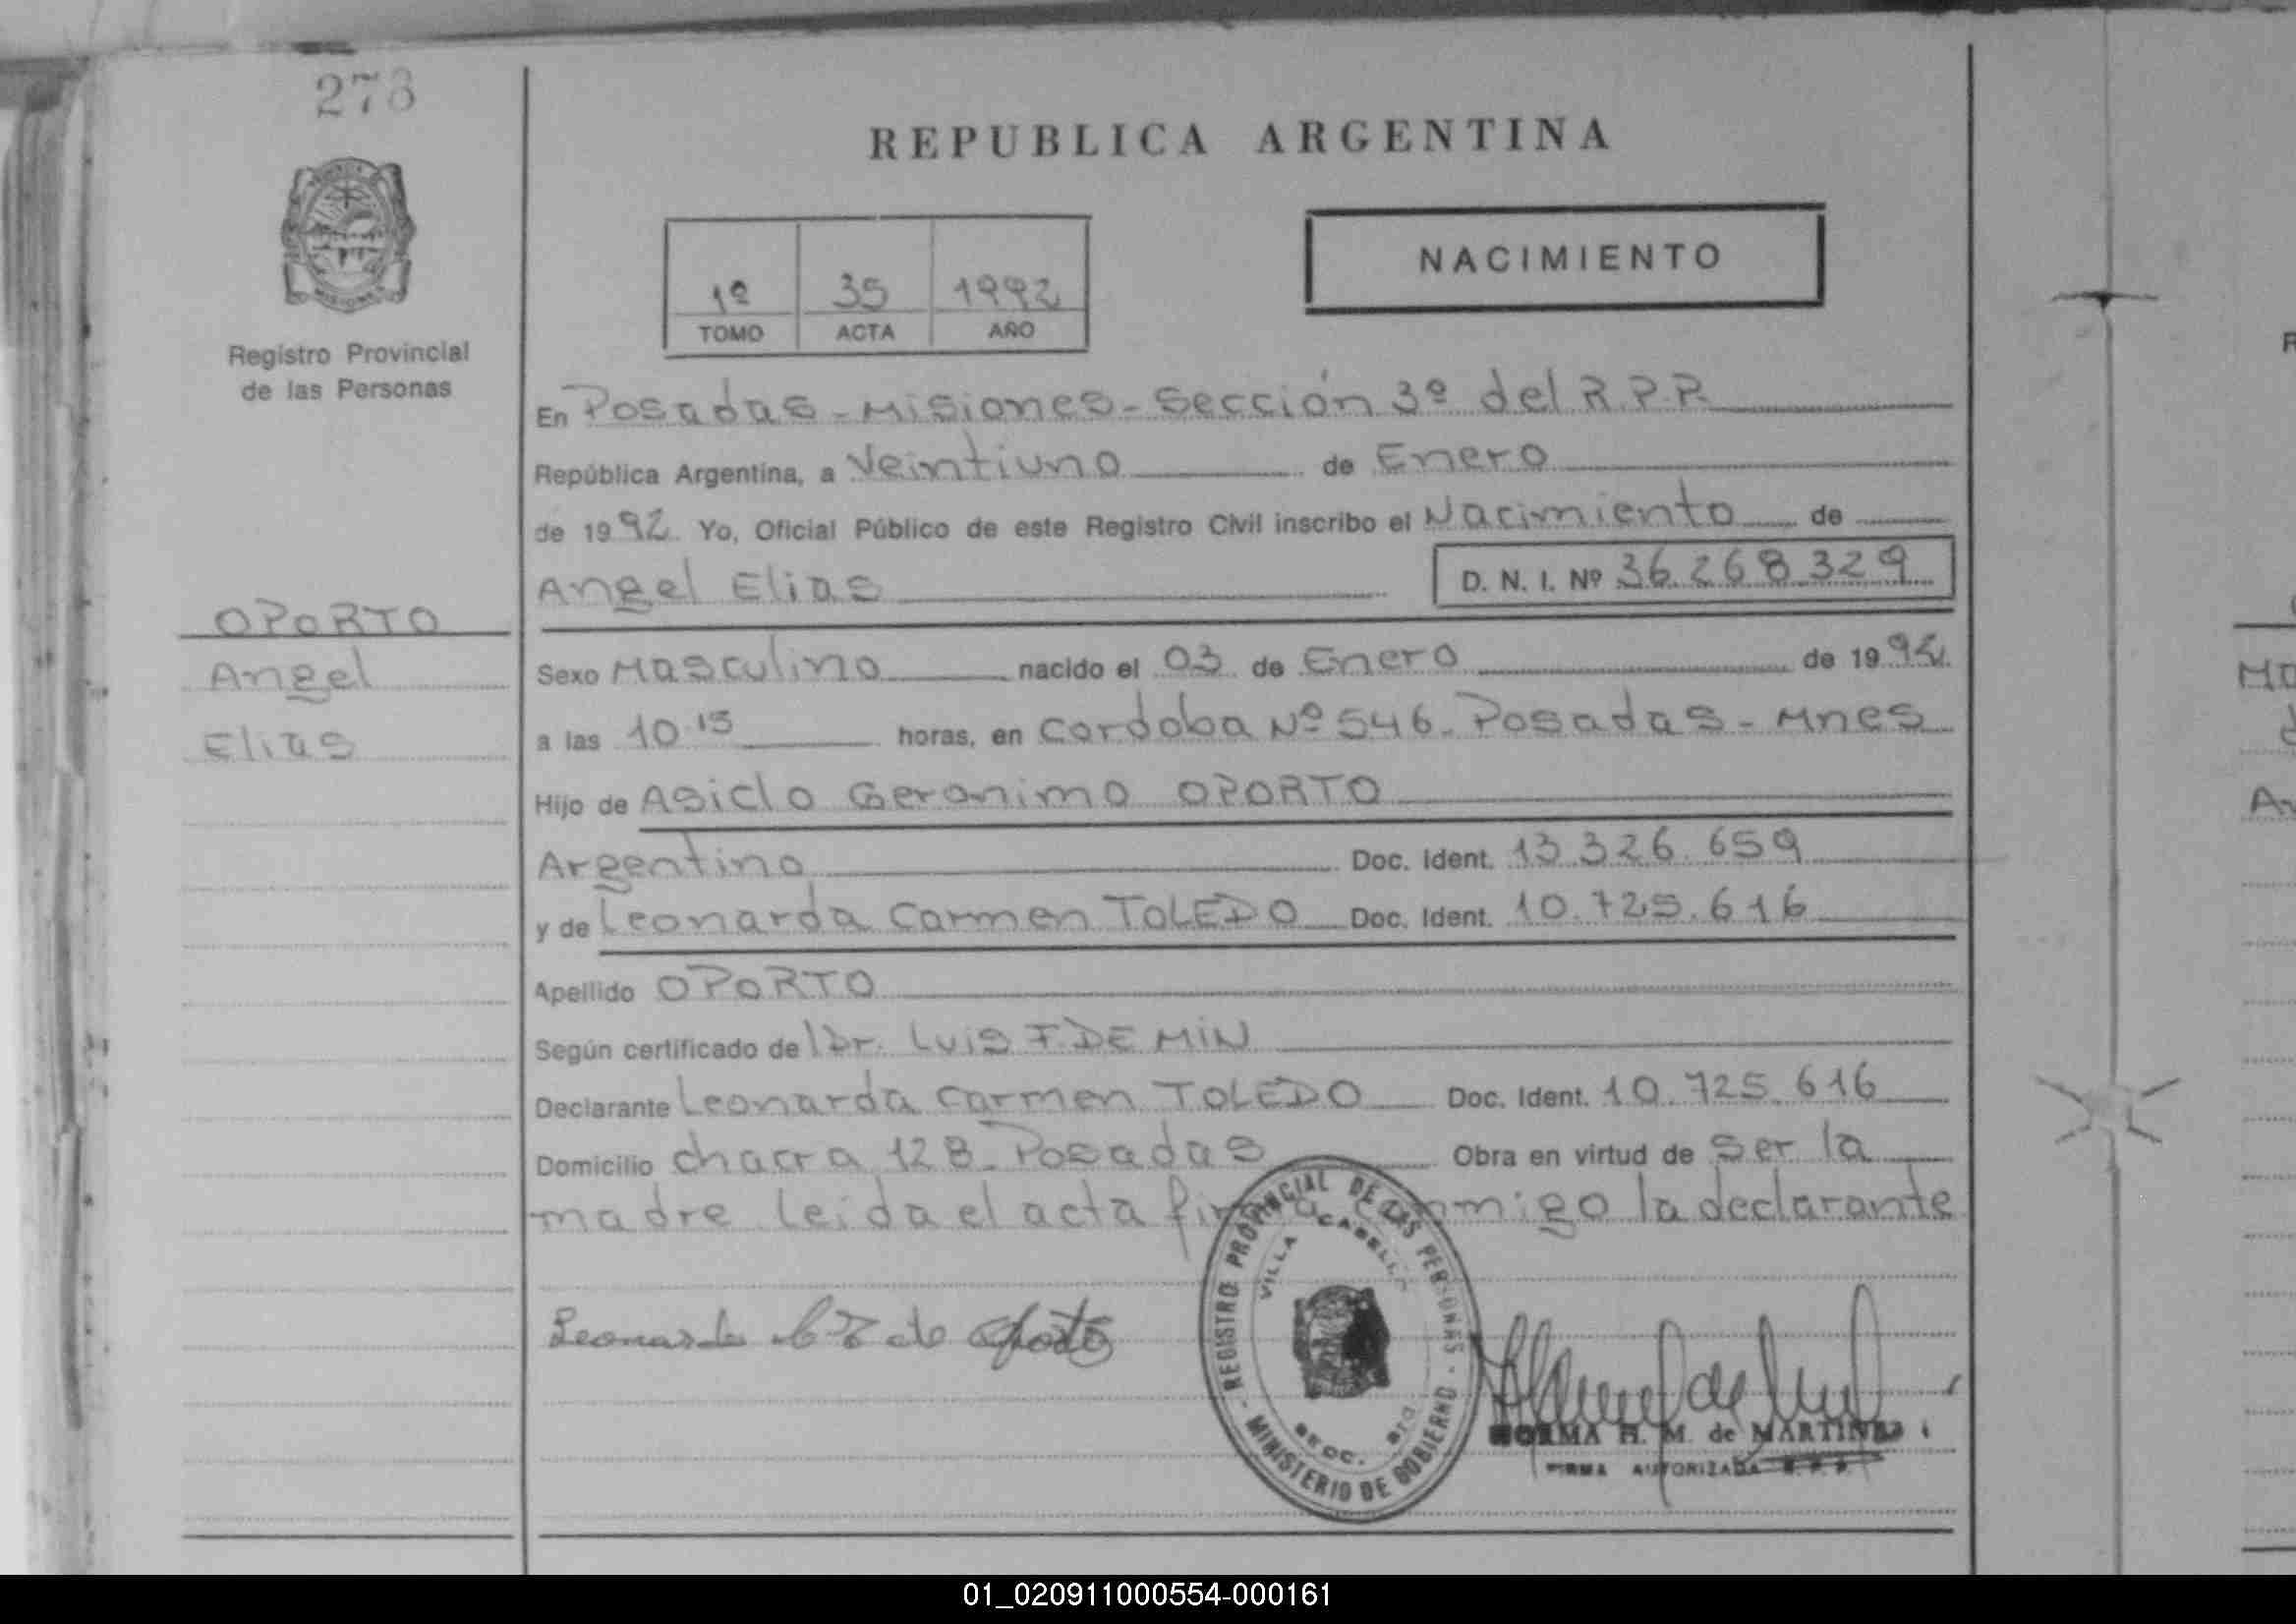 273
REPUBLICA ARGENTINA
NACIMIENTO
1º 35 1992
TOMO ACTA AÑO
Registro Provincial
de las Personas
En Posadas - Misiones - Sección 3º del R.P.P.
República Argentina, a Veintiuno de Enero
de 1992 Yo, Oficial Público de este Registro Civil inscribo el Nacimiento de
Angel Elias D. N. I. Nº 36.268.329
OPORTO
Angel
Elias
Sexo Masculino nacido el 03 de Enero de 1992
a las 10.15 horas, en Cordoba Nº 546. Posadas - Mnes
Hijo de Asiclo Geronimo OPORTO
Argentino Doc. Ident. 13.326.659
y de Leonarda Carmen TOLEDO Doc. Ident. 10.725.616
Apellido OPORTO
Según certificado del Dr. Luis F. DE MIN
Declarante Leonarda Carmen TOLEDO Doc. Ident. 10.725.616
Domicilio chacra 128 - Posadas Obra en virtud de ser la
madre leida el acta firma conmigo la declarante
REGISTRO PROVINCIAL DE LAS PERSONAS - MINISTERIO DE GOBIERNO -
VILLA CABELLO
SECC. 3ra.
Leonarda C T de Oporto
NORMA H. M. de MARTINEZ
FIRMA AUTORIZADA R. P. P.
01_020911000554-000161